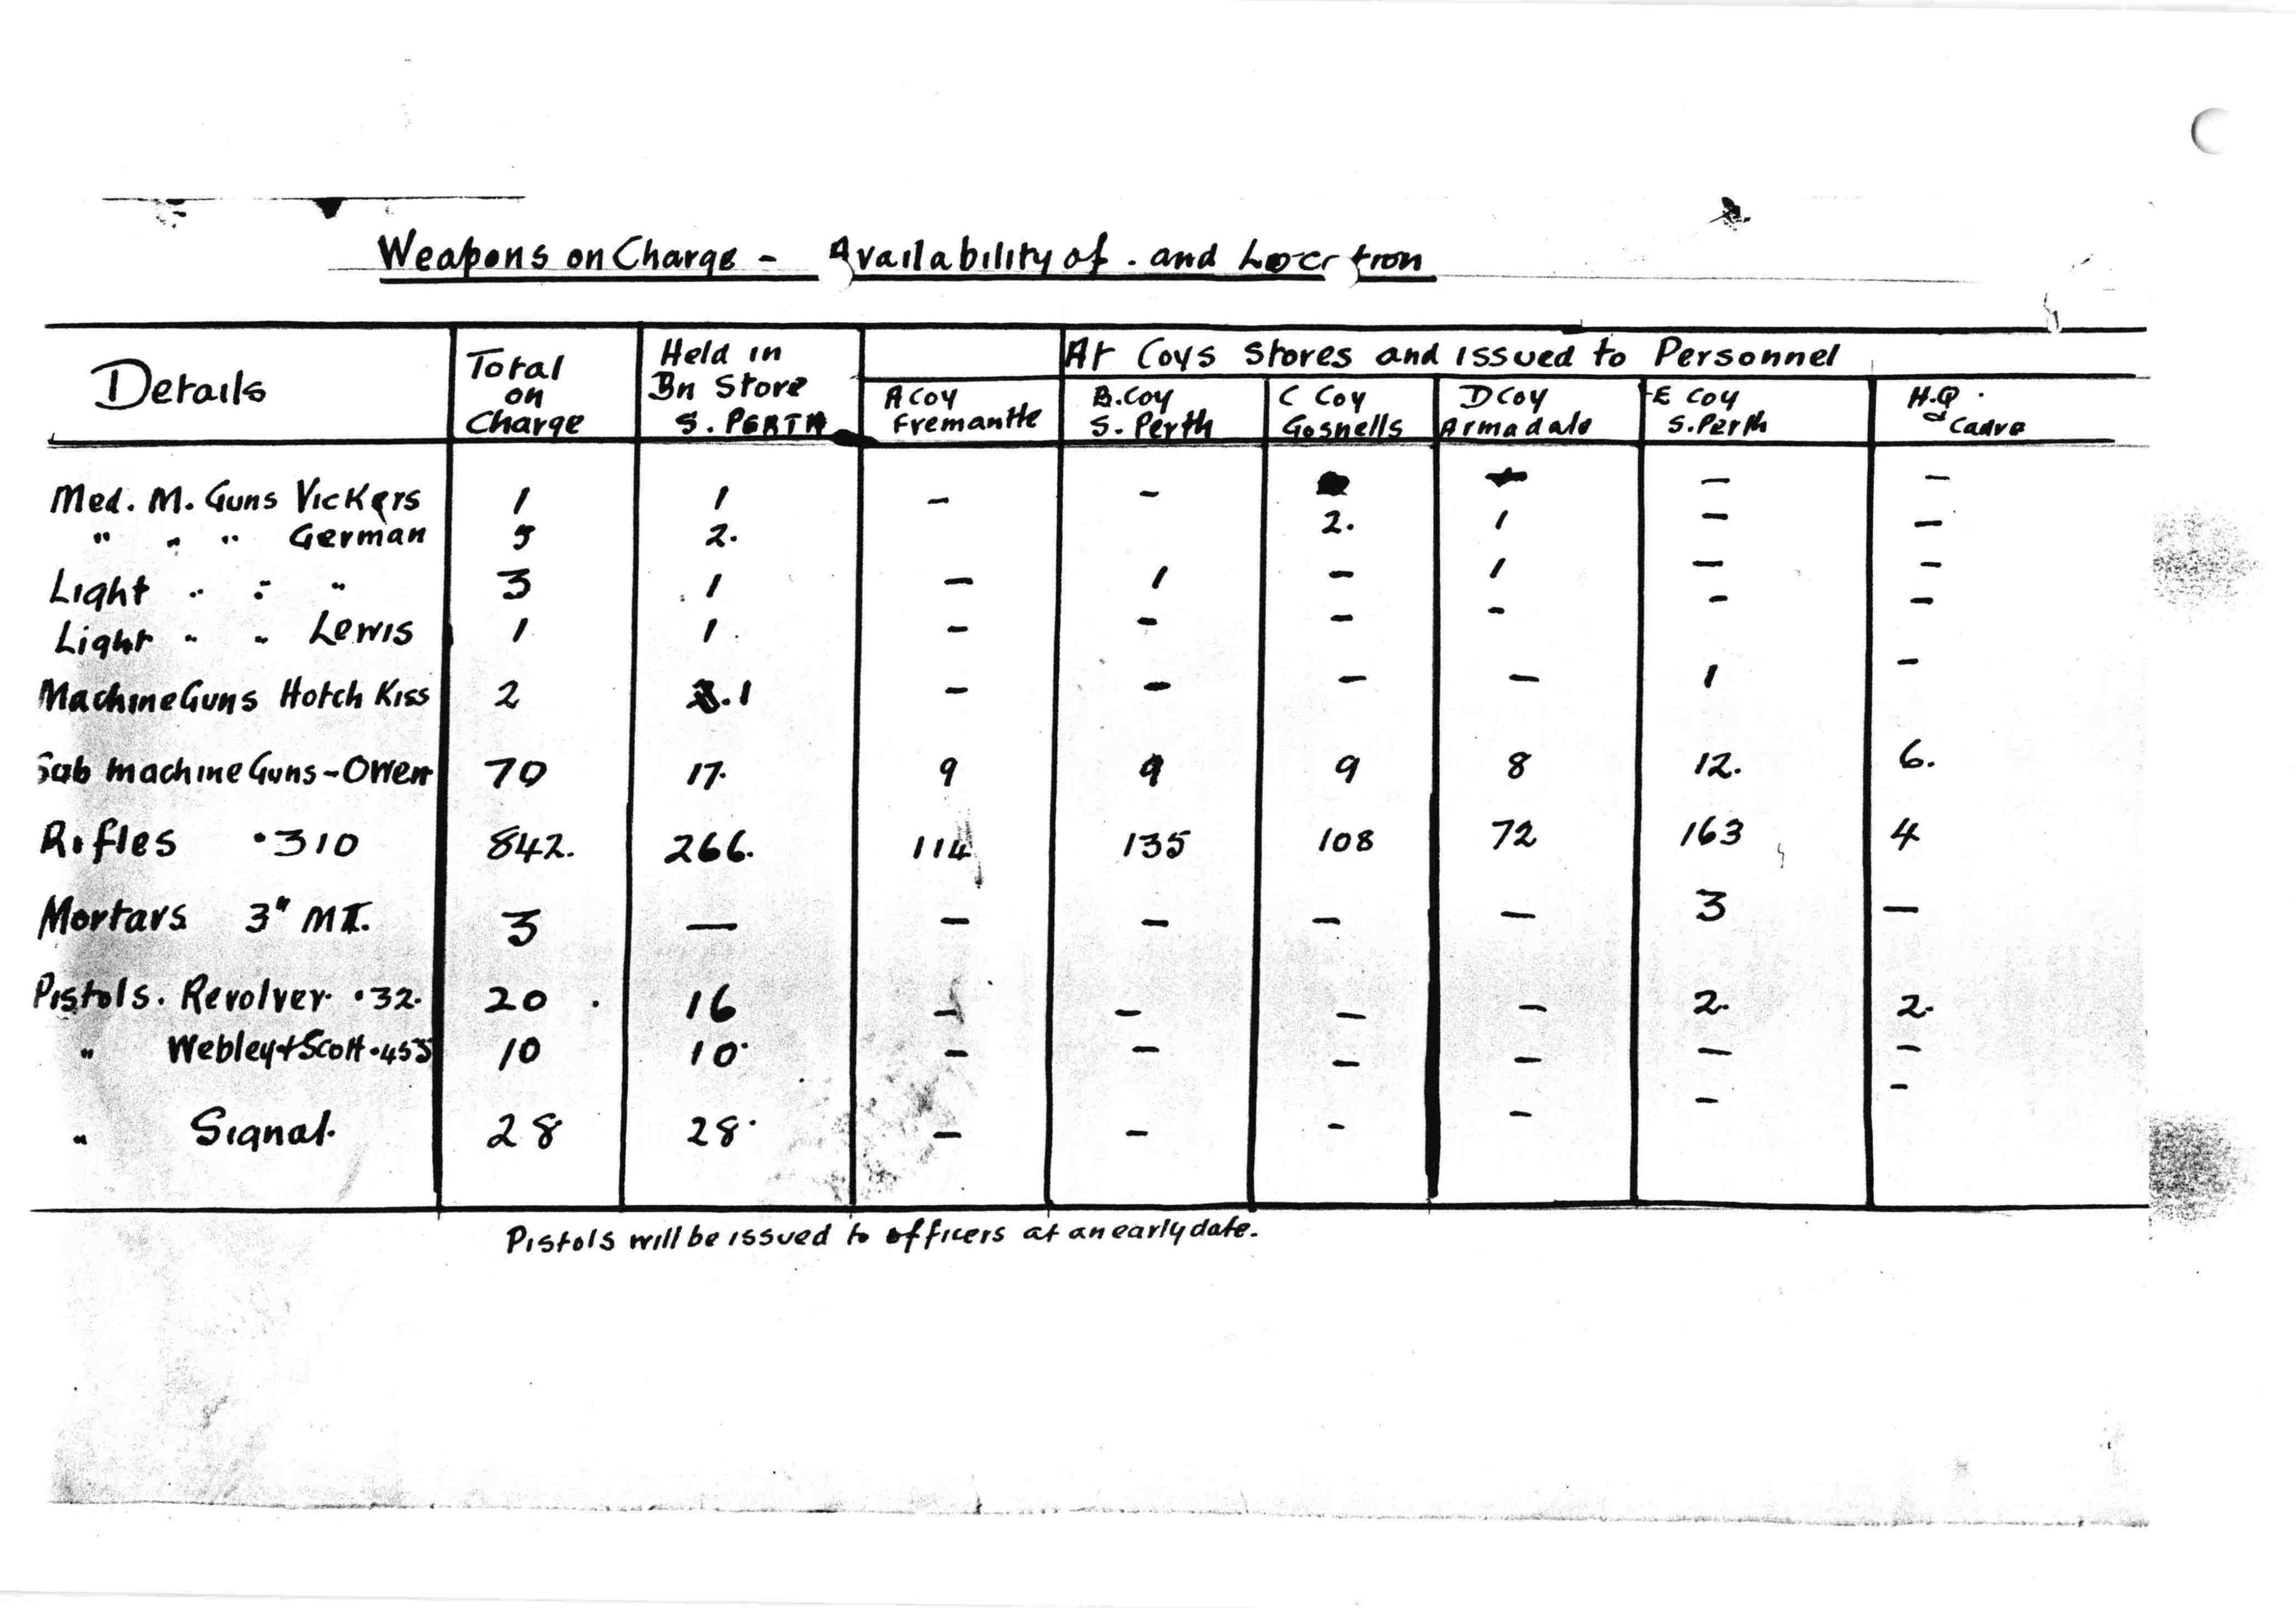 Weapons on Charge - Availability of . and Location
Details
Total on Charge
Held in Bn Store S. PERTH
At Coys Stores and issued to Personnel
A Coy Fremantle
B. Coy S. Perth
C Coy Gosnells
D Coy Armadale
E Coy S. Perth
H.Q. & Cadre
Med. M. Guns Vickers 1 1 - - - - -
" " " German 5 2. 2. 1 - -
Light " " " 3 1 - 1 - 1 - -
Light " " Lewis 1 1. - - - - - -
Machine Guns Hotch Kiss 2 1 - - - - 1 -
Sub machine Guns - Owen 70 17. 9 9 9 8 12. 6.
Rifles .310 842. 266. 114 135 108 72 163 4
Mortars 3" 3 — - - - - 3 —
Pistols. Revolver .32. 20 16 - - - - 2. 2.
" Webley & Scott .455 10 10. - - - - - -
" Signal. 28 28. - - - - - -
Pistols will be issued to officers at an early date.